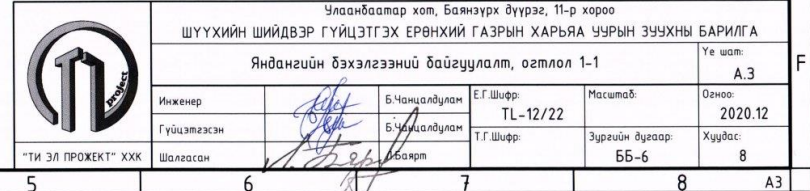 Улаанбаатар хот, Баянзүрх дүүрэг, 11-р хороо
ШҮҮХИЙН ШИЙДВЭР ГҮЙЦЭТГЭХ ЕРӨНХИЙ ГАЗРЫН ХАРЬЯА УУРЫН ЗУУХНЫ БАРИЛГА
Яндангийн бэхэлгээний байгуулалт, огтлол 1-1
Үе шат:
А.З
F
project
"ТИ ЭЛ ПРОЖЕКТ" ХХК
Инженер
Б.Чанцалдулам
Гүйцэтгэсэн
Б.Чанцалдулам
Шалгасан
Баярт
Е.Г.Шифр:
TL-12/22
Т.Г.Шифр:
Масштаб:
Зургийн дугаар:
ББ-6
Огноо:
2020.12
Хуудас:
8
5 6 7 8 А3